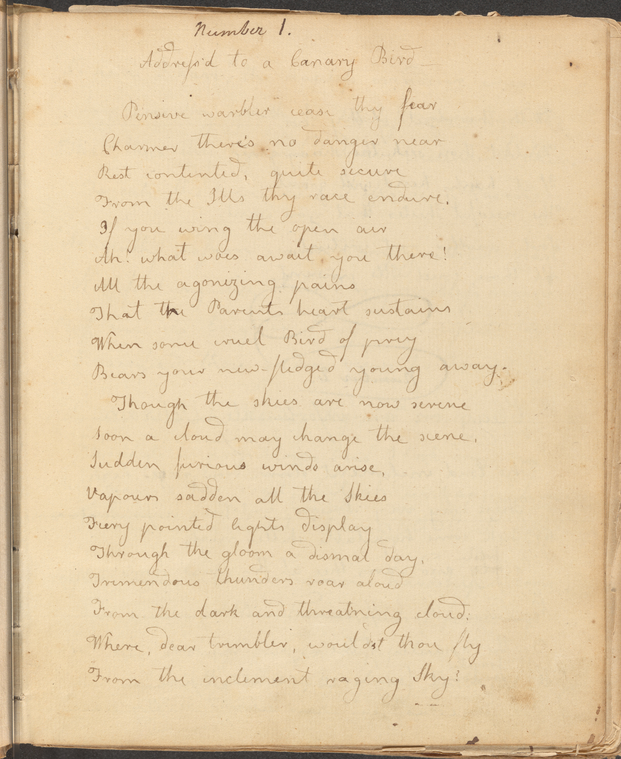 Number 1.
Address'd to a Canary Bird
Pensive warbler cease thy fear
Charmer there's no danger near
Rest contented, quite secure
From the Ills thy race endure.
If you wing the open air
Ah! what woes await you there!
All the agonizing pains
That the Parents heart sustains
When some cruel Bird of prey
Bears your new-fledged young away.
Though the skies are now serene
Soon a cloud may change the scene.
Sudden furious winds arise,
Vapours sadden all the Skies
Fiery pointed lights display
Through the gloom a dismal day.
Tremendous thunders roar aloud
From the dark and threatning cloud:
Where, dear trembler, wouldst thou fly
From the inclement raging Sky?